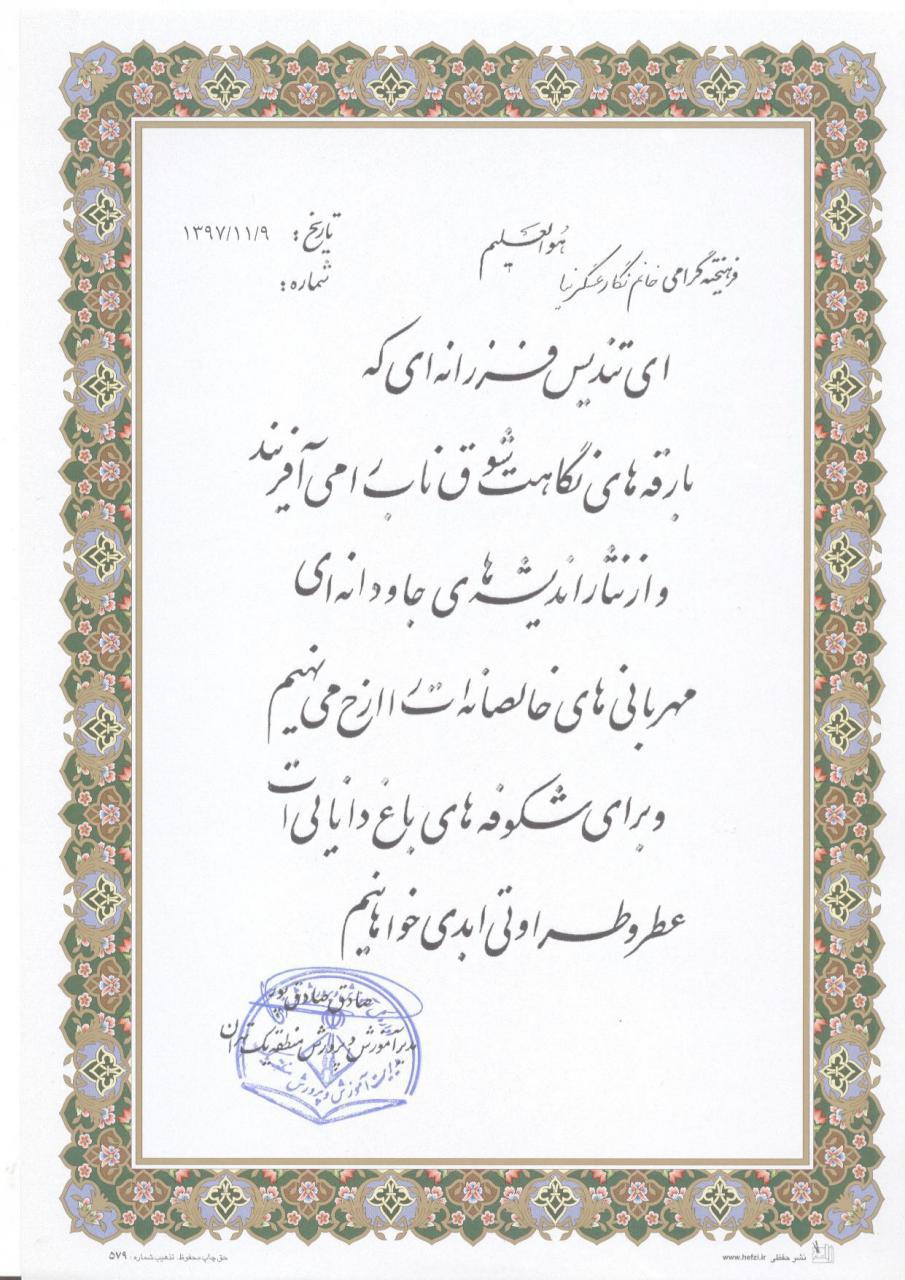 هوالعلیم
تاریخ: ۱۳۹۷/۱۱/۹
شماره:
فرهیخته گرامی خانم نگار عسگرنیا
ای تندیس فرزانه ای که
بارقه های نگاهت شوق ناب را می آفریند
و از نثار اندیشه های جاودانه ای
مهربانی های خالصانه ات را ارج می نهیم
و برای شکوفه های باغ دانایی ات
عطر و طراوتی ابدی خواهانیم
صادق صادق پور
مدیر آموزش و پرورش منطقه یک تهران
آموزش و پرورش
حق چاپ محفوظ. تذهیب شماره: ۵۷۹
نشر حفظی www.hefzi.ir